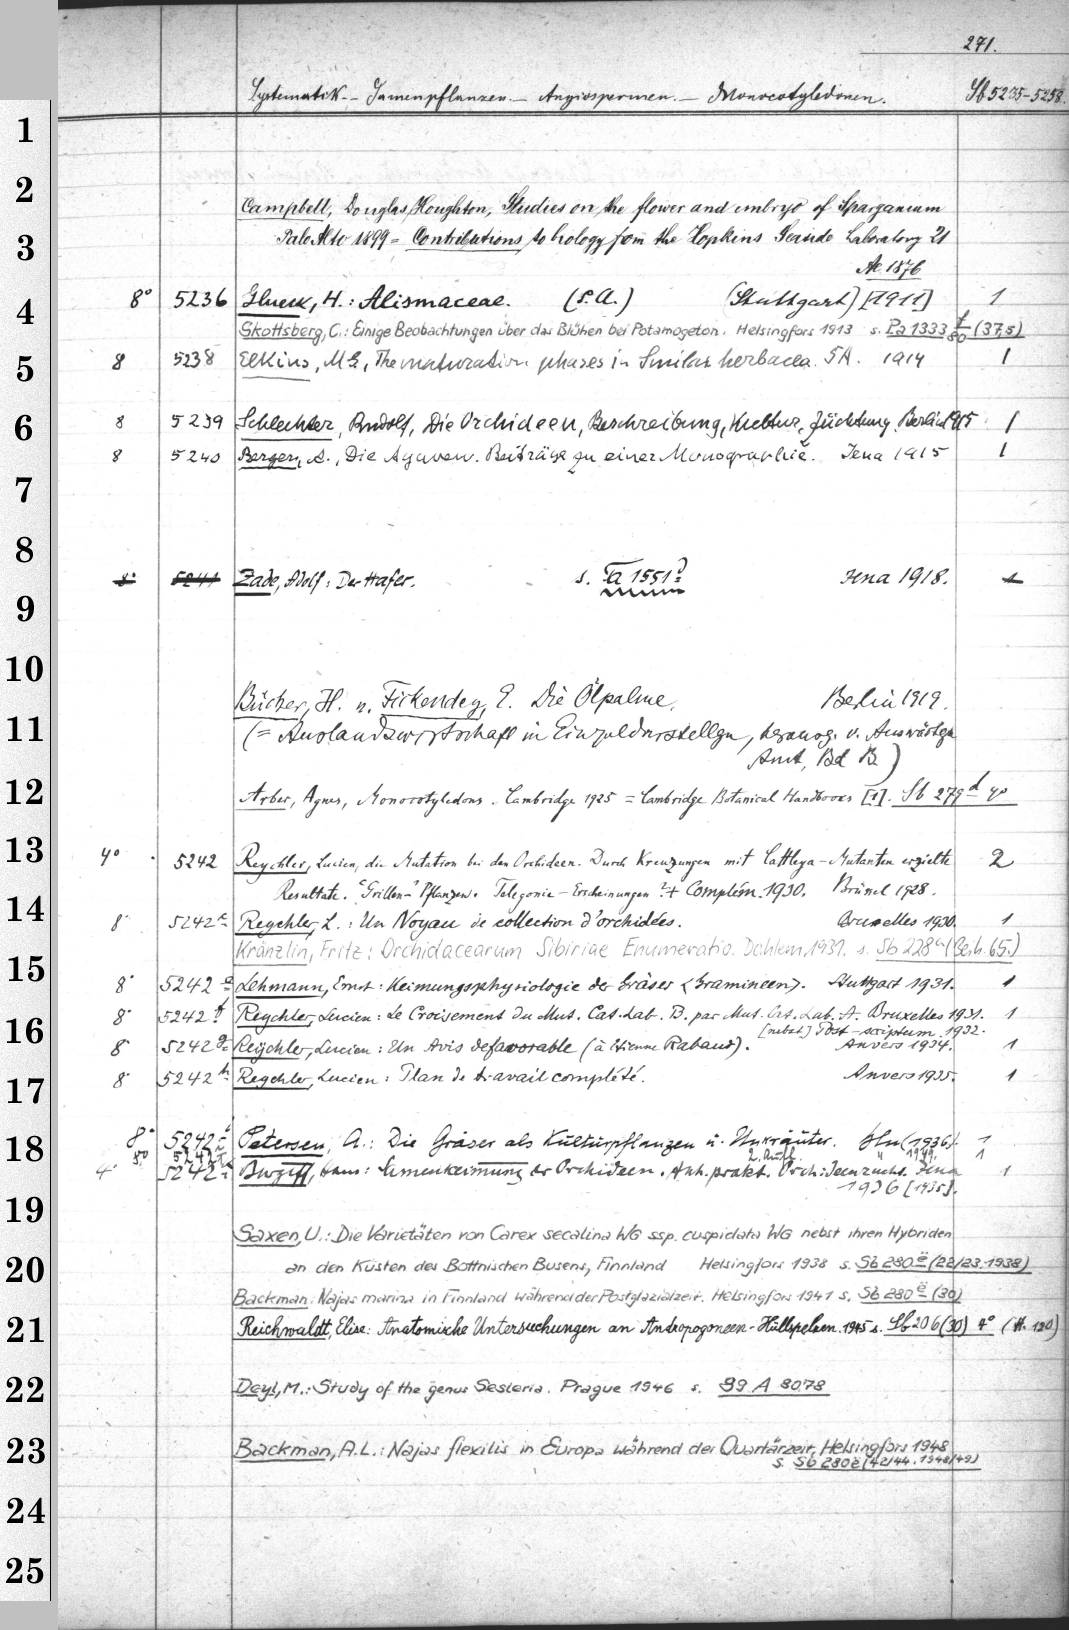 271.
Systematik. – Samenpflanzen. – Angiospermen. – Monocotyledonen. Sb 5235–5258.
1
2
Campbell, Douglas Houghton, Studies on the flower and embryo of Sparganium
3
Palo Alto 1899 = Contributions to biology from the Hopkins Seaside Laboratory 21
Ae 1876
4
8° 5236 Glueck, H.: Alismaceae. (S.A.) (Stuttgart) [1911] 1
Skottsberg, C.: Einige Beobachtungen über das Blühen bei Potamogeton. Helsingfors 1913 s. Pa 1333 (37,5)
5
8 5238 Elkins, M.G., The maturation phases in Smilax herbacea. SA. 1914 1
6
8 5239 Schlechter, Rudolf, Die Orchideen, Beschreibung, Kultur, Züchtung. Berlin 1915 1
8 5240 Berger, A., Die Agaven. Beiträge zu einer Monographie. Jena 1915 1
7
8
8° 5241 Zade, Adolf: Der Hafer. s. Ta 1551 Jena 1918. 1
9
10
Bücher, H. u. Fickendey, E. Die Ölpalme. Berlin 1919.
11
(= Auslandswirtschaft in Einzeldarstellgn, herausg. v. Auswärtgn
Amt, Bd 2)
12
Arber, Agnes, Monocotyledons. Cambridge 1925 = Cambridge Botanical Handbooks [1]. Sb 279 d 40
13
4° 5242 Reychler, Lucien, die Mutation bei den Orchideen. Durch Kreuzungen mit Cattleya-Mutanten erzielte 2
Resultate. "Grillen"-Pflanzen. Telegonie-Erscheinungen + Complém. 1930. Brüssel 1928.
14
8° 5242 c Reychler, L.: Un Noyau de collection d'orchidées. Bruxelles 1930. 1
Kränzlin, Fritz: Orchidacearum Sibiriae Enumeratio. Dahlem 1931. s. Sb 228 a (Beih. 65.)
15
8° 5242 e Lehmann, Ernst: Keimungsphysiologie der Gräser (Gramineen). Stuttgart 1931. 1
8° 5242 f Reychler, Lucien: Le Croisement du Mut. Cat. Lab. B. par Mut. Cat. Lab. A. Bruxelles 1931. 1
16
[nebst] Post-scriptum. 1932.
8° 5242 g Reychler, Lucien: Un Avis défavorable (à Etienne Rabaud). Anvers 1934. 1
17
8° 5242 h Reychler, Lucien: Plan de travail complété. Anvers 1935. 1
18
8° 5242 i Petersen, A.: Die Gräser als Kulturpflanzen u. Unkräuter. Bln (1936). 1
8° 5242 2. Aufl. " 1949. 1
4° 5242 k Burgeff, Hans: Samenkeimung der Orchideen. Anh. prakt. Orch: Samenzucht. Jena 1
1936 [1935].
19
Saxen, U.: Die Varietäten von Carex secalina WG ssp. cuspidata WG nebst ihren Hybriden
20
an den Küsten des Bottnischen Busens, Finnland Helsingfors 1938 s. Sb 280 e (22/23.1938)
Backman: Najas marina in Finnland während der Postglazialzeit. Helsingfors 1941 s. Sb 280 e (30)
21
Reichwaldt, Elise: Anatomische Untersuchungen an Andropogoneen-Hüllspelzen. 1945 s. Sb 206 (30) 4° (H. 120)
22
Deyl, M.: Study of the genus Sesleria. Prague 1946 s. 99 A 8078
23
Backman, A.L.: Najas flexilis in Europa während der Quartärzeit. Helsingfors 1948
s. Sb 280 e (42/44. 1948/49)
24
25